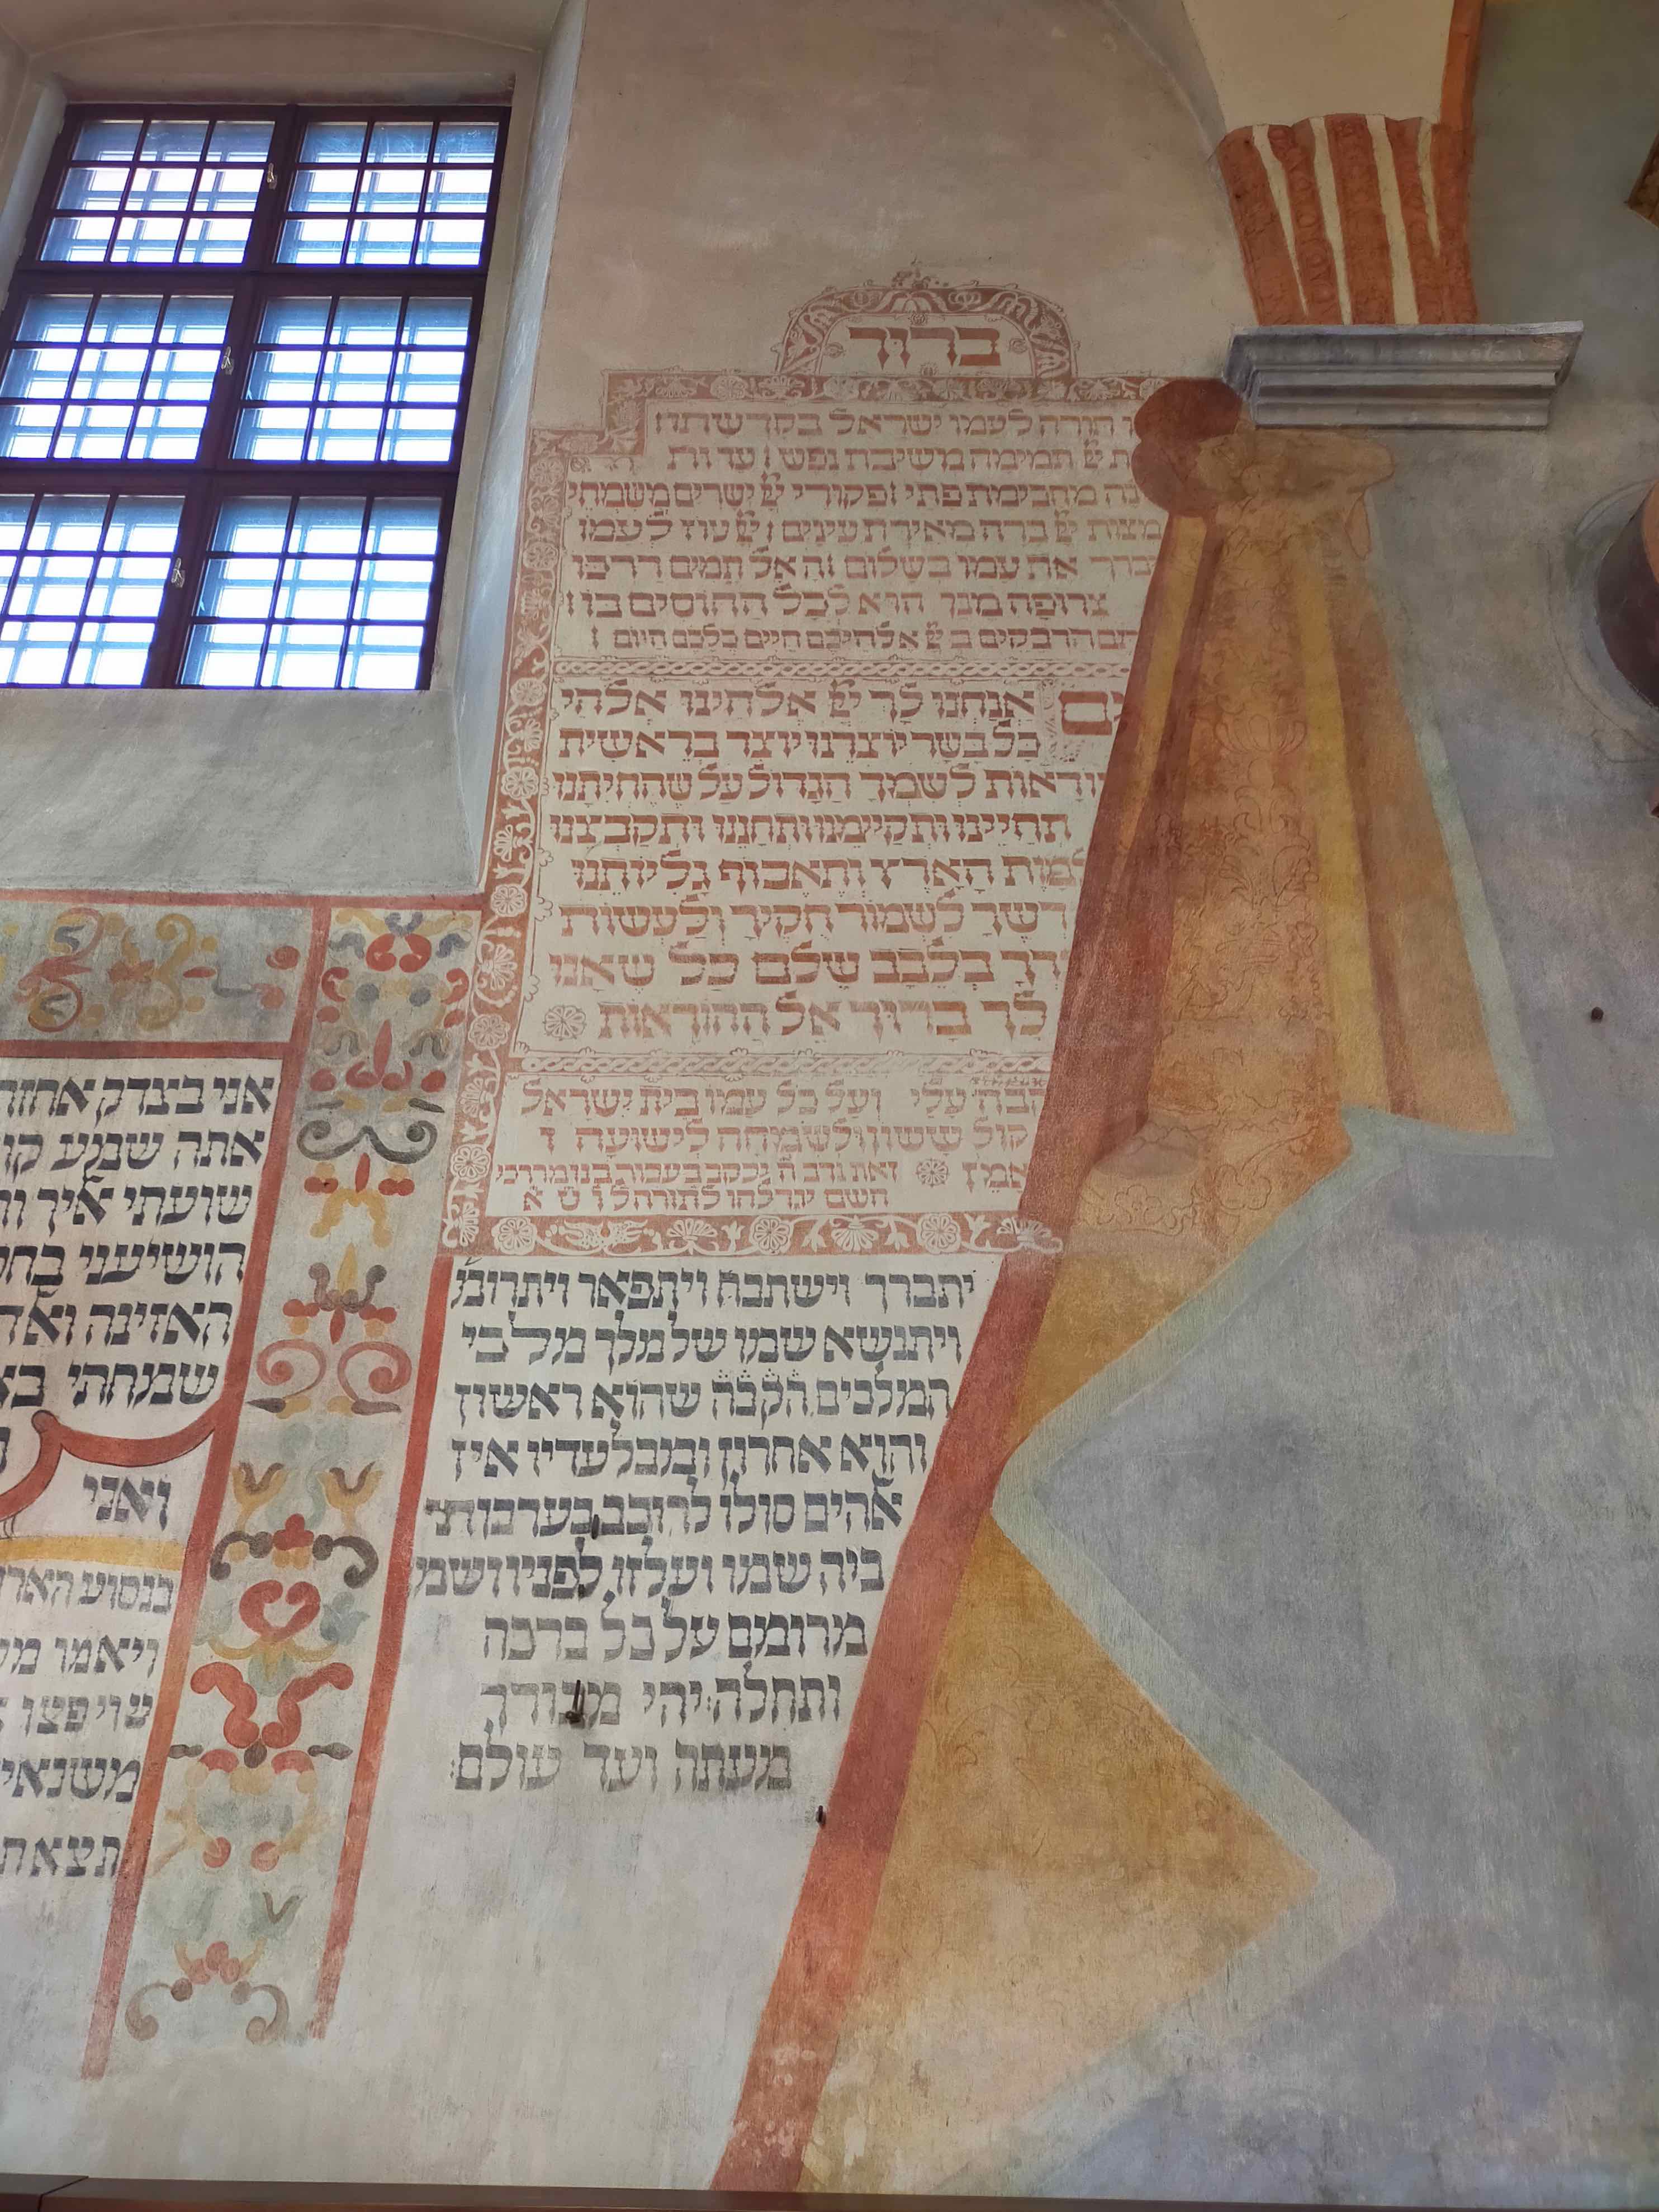 ברוך
תורה לעמו ישראל בקדשתו
תמימה משיבת נפש עדות
מחכימת פתי פקודי ישרים משמחי
מצות ברה מאירת עינים עוז לעמו
את עמו בשלום האל תמים דרכו
צרופה מגן הוא לכל החוסים בו
הדבקים אלהיכם חיים כלכם היום
אנחנו לך אלהינו אלהי
כל בשר יוצרנו יוצר בראשית
לשמך הגדול על שהחיתנו
תחיינו ותקיימנו ותחננו ותקבצנו
הארץ ותאסוף גליותנו
לשמור חקיך ולעשות
בלבב שלם כל שאנו
לך ברוך אל ההודאות
עלי ועל כל עמו בית ישראל
קול ששון ולשמחה לישועה
אמן זאת נדב
השם יגדלהו לתורה
יתברך וישתבח ויתפאר ויתרומ
ויתנשא שמו של מלך מלכי
המלכים הקבה שהוא ראשון
והוא אחרון ומבלעדיו אין
אהים סולו לרוכב בערבות
ביה שמו ועלזו לפניו ושמ
מרומם על כל ברכה
ותהלה יהי מבודך
מעתה ועד עולם
אני בצדק אחזה
אתה שמע קו
שועתי איך
הושיעני
האזינה ואל
שמחתי
ואני
בנסוע הארן
ויאמר
משנאי
תצא